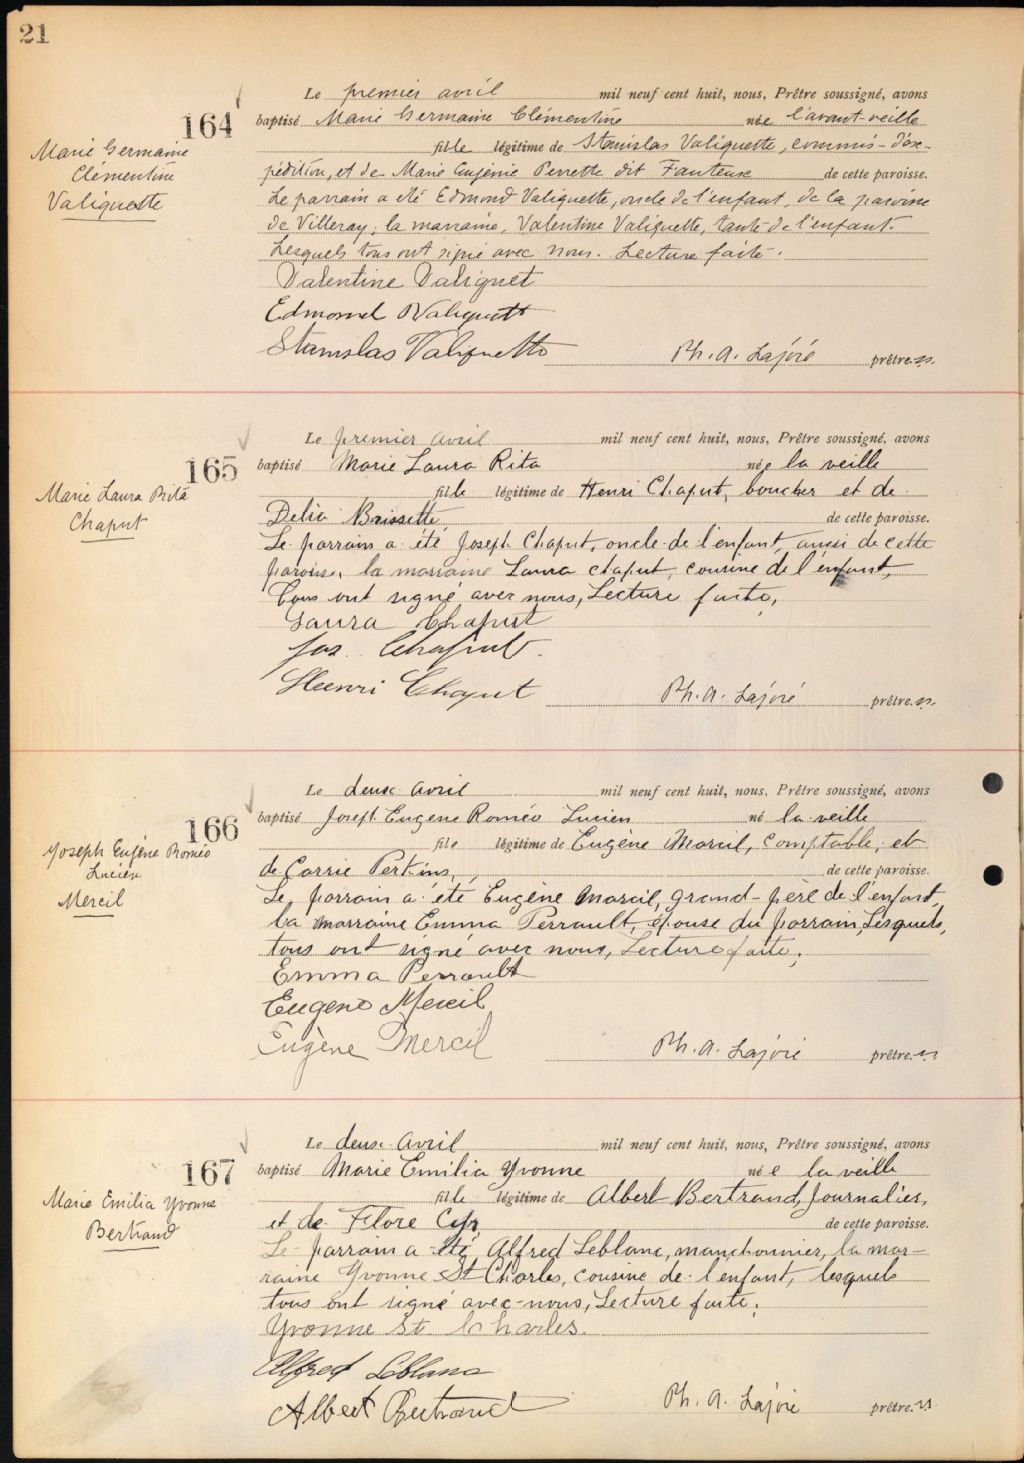 21
164
Marie Germaine
Clémentine
Valiquette
Le premier avril mil neuf cent huit, nous, Prêtre soussigné, avons
baptisé Marie Germaine Clémentine née l'avant-veille
fille légitime de Stanislas Valiquette, commis-d'ex-
pédition, et de Marie Eugénie Perrette dit Fauteux de cette paroisse.
Le parrain a été Edmond Valiquette, oncle de l'enfant, de la paroisse
de Villeray; la marraine, Valentine Valiquette, tante de l'enfant.
Lesquels tous ont signé avec nous. Lecture faite.
Valentine Valiquet
Edmond Valiquett
Stanislas Valiquette Ph. A. Lajoie prêtre.
165
Marie Laura Rita
Chaput
Le premier avril mil neuf cent huit, nous, Prêtre soussigné, avons
baptisé Marie Laura Rita née la veille
fille légitime de Henri Chaput, boucher et de
Delia Brissette, de cette paroisse.
Le parrain a été Joseph Chaput, oncle de l'enfant, aussi de cette
paroisse, la marraine Laura Chaput, cousine de l'enfant,
Tous ont signé avec nous, Lecture faite,
Laura Chaput
Jos. Chaput.
Henri Chaput Ph. A. Lajoie prêtre.
166
Joseph Eugène Roméo
Lucien
Mercil
Le deux avril mil neuf cent huit, nous, Prêtre soussigné, avons
baptisé Joseph Eugene Roméo Lucien né la veille
fils légitime de Eugène Marcil, comptable, et
de Carrie Perkins, de cette paroisse.
Le parrain a été Eugène Marcil, grand-père de l'enfant,
la marraine Emma Perrault, épouse du parrain, Lesquels,
tous ont signé avec nous, Lecture faite,
Emma Perrault
Eugene Mercil
Eugène Mercil Ph. A. Lajoie prêtre.
167
Marie Emilia Yvonne
Bertrand
Le deux avril mil neuf cent huit, nous, Prêtre soussigné, avons
baptisé Marie Emilia Yvonne née la veille
fille légitime de Albert Bertrand, journalier,
et de Flore Cyr, de cette paroisse.
Le parrain a été Alfred Leblanc, manchonnier, la mar-
raine Yvonne St Charles, cousine de l'enfant, lesquels
tous ont signé avec nous, Lecture faite.
Yvonne St. Charles.
Alfred Leblanc
Albert Bertrand Ph. A. Lajoie prêtre.